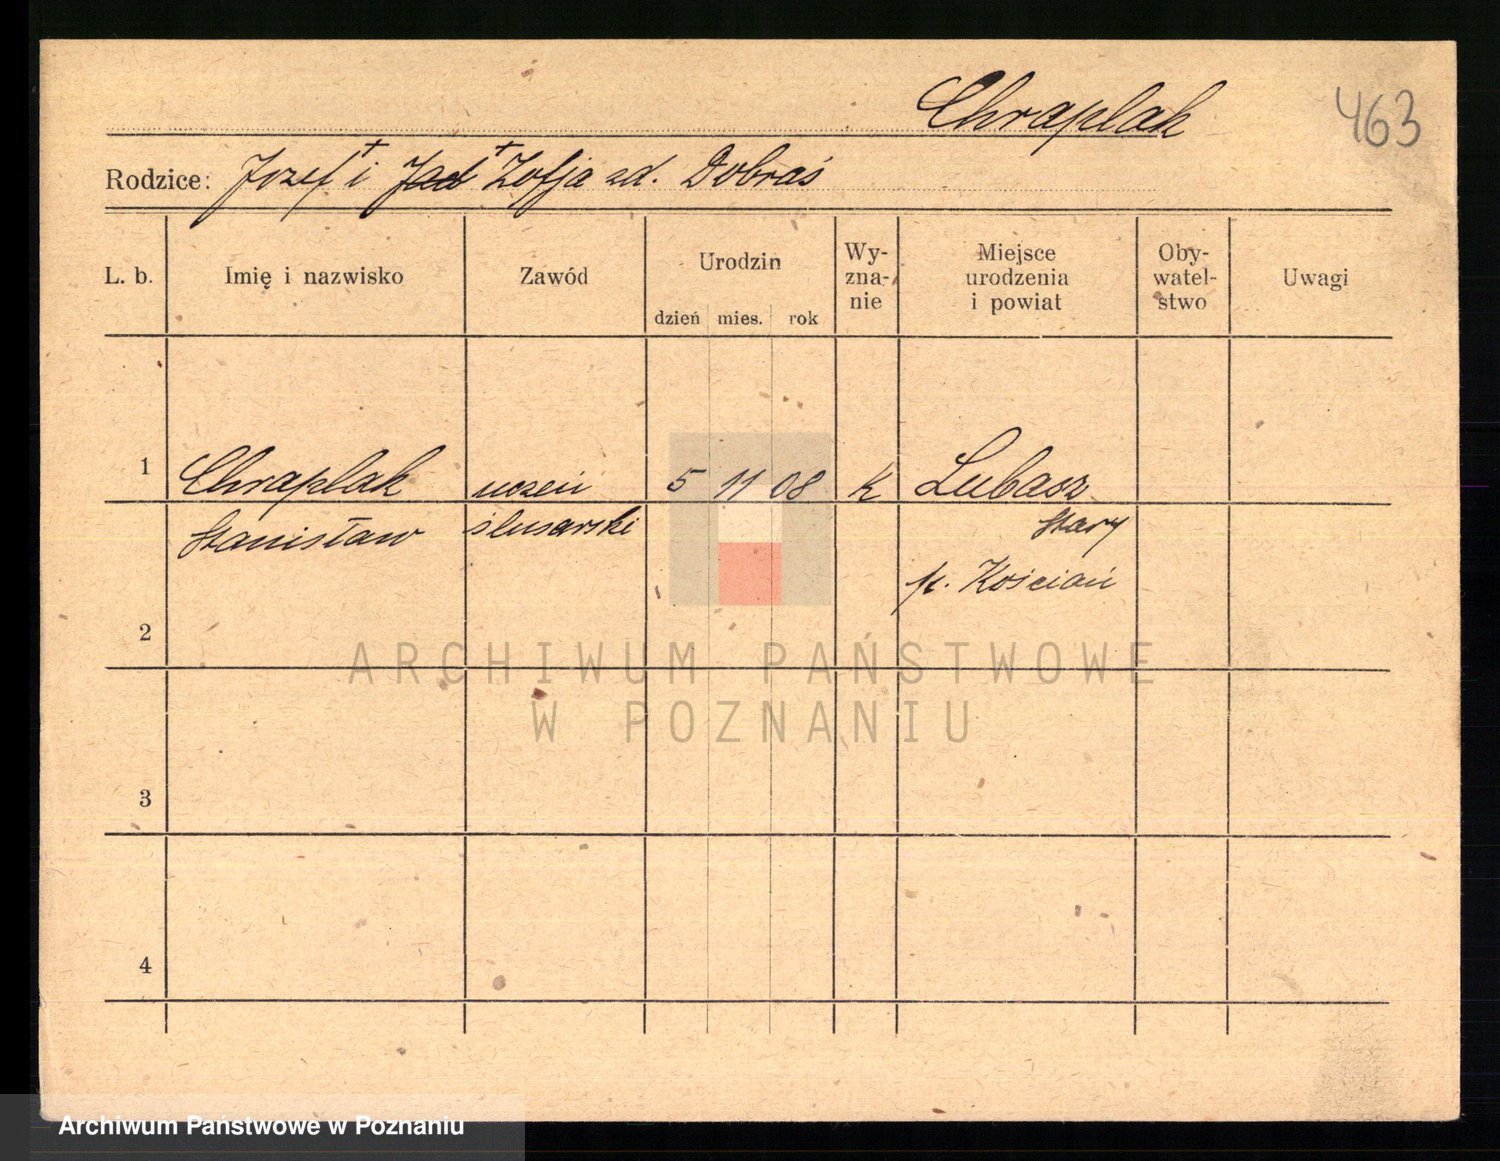 Chraplak 463
Rodzice: Józef + i Jad + Zofja zd. Dobraś
L. b. Imię i nazwisko Zawód Urodzin dzień mies. rok Wy-zna-nie Miejsce urodzenia i powiat Oby-watel-stwo Uwagi
1 Chraplak uczeń 5 11 08 k Lubosz
Stanisław ślusarski Stary
p. Kościan
2
3
4
ARCHIWUM PAŃSTWOWE
W POZNANIU
Archiwum Państwowe w Poznaniu